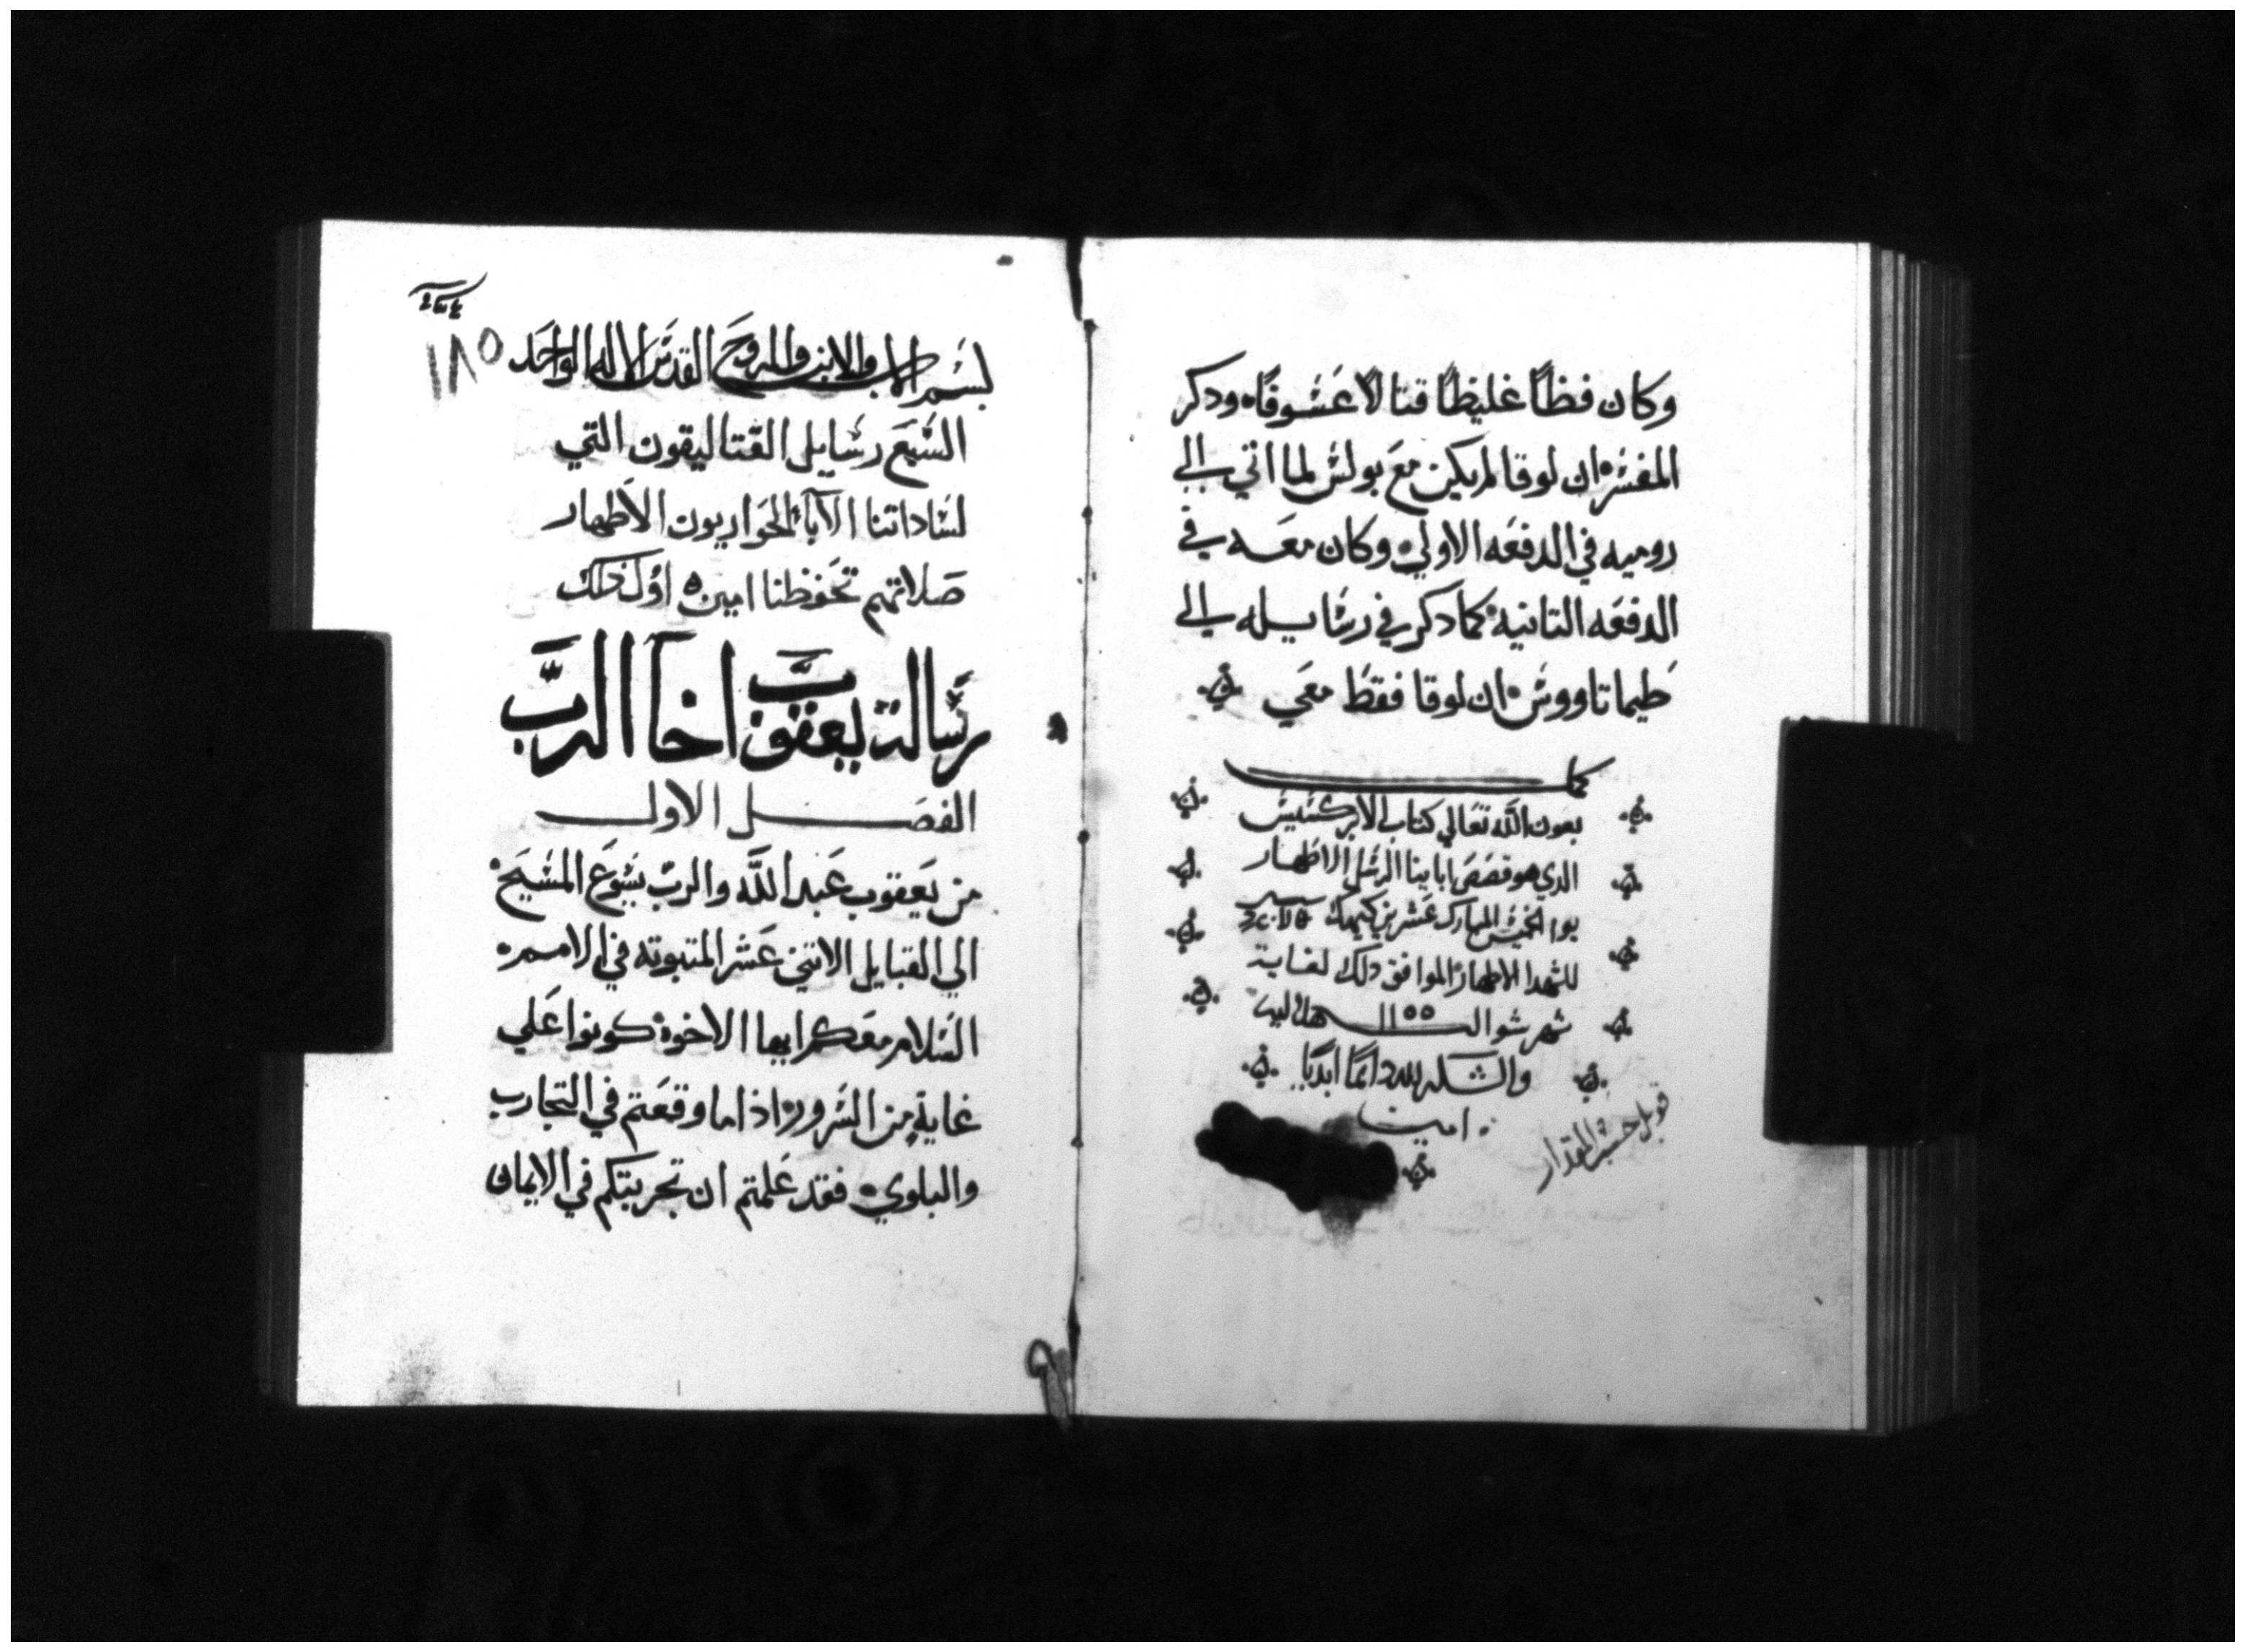 وكان فظًا غليظًا قتالًا عشوفًا ودكر
المفسر ان لوقا لم يكن مع بولس لما اتي الي
روميه في الدفعه الاولي وكان معه في
الدفعه التانيه كما دكر في رسايله الي
طيماتاووس ان لوقا فقط معي
كمل
بعون الله تعالي كتاب الابركسيس
الدي هو قصص اباينا الرسل الاطهار
يوم الخميس المبارك عشرين كيهك
للشهدا الاطهار الموافق دلك لغاية
شهر شوال ١١٥٥ هلاليه
والشكر لله دائمًا ابديًا
امين
قوبل حسب المقدار
١٨٥
بسم الاب والابن والروح القدس الاله الواحد
السبع رسايل القتاليقون التي
لساداتنا الآباء الحواريون الاطهار
صلاتهم تحفظنا امين اول ذلك
رسالة يعقوب اخا الرب
الفصل الاول
من يعقوب عبد الله والرب يسوع المسيح
الي القبايل الاتني عشر المتبوته في الامم
السلام معكم ايها الاخوة كونوا علي
غاية من السرور اذا ما وقعتم في التجارب
والبلوي فقد علمتم ان تجربتكم في الايمان